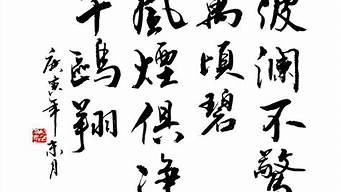 波澜不驚
萬頃碧
風煙俱淨
千鷗翔
庚寅年
京月